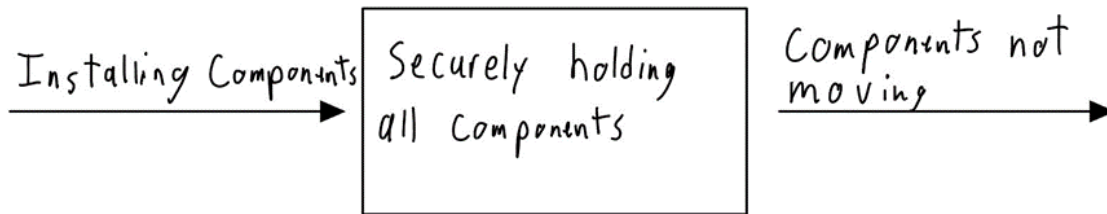 Installing Components
Securely holding
all components
Components not
moving